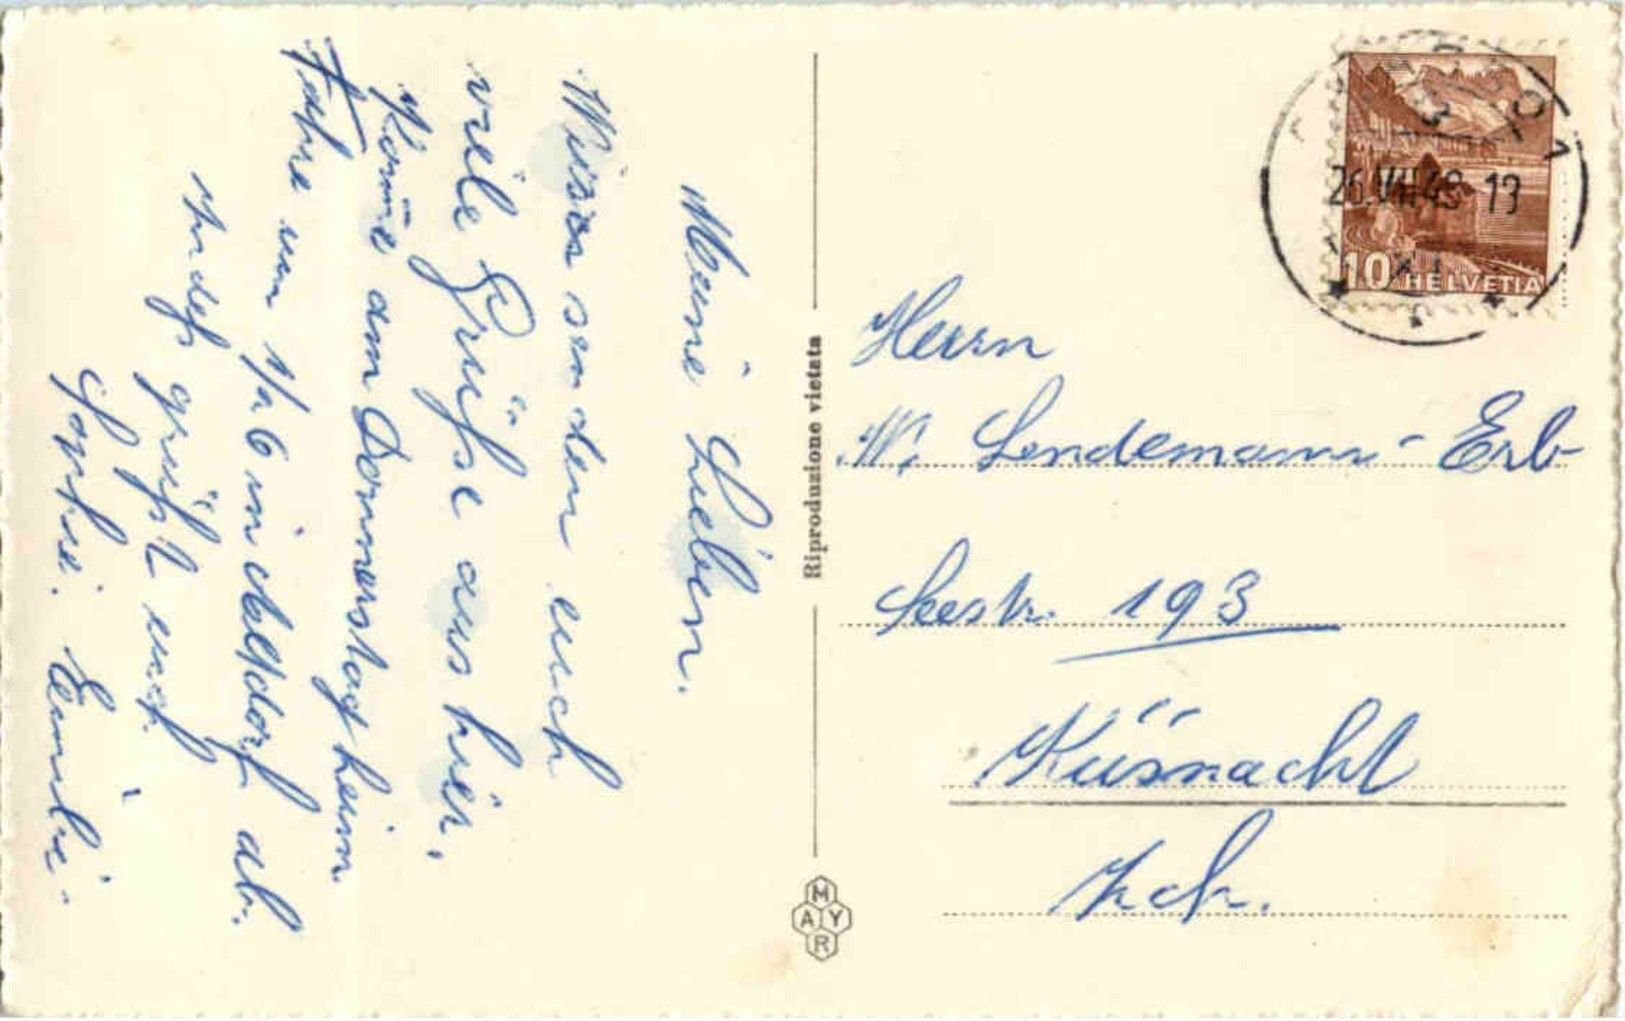 Meine Lieben.
Wir senden euch
viele Grüße aus hier,
Kom̄e am Donnerstag heim
Fahre um 1/2 6 in Altdorf ab.
Indess grüßt euch
Sophie. Emilie.
Riproduzione vietata
MAYR
26.VII.48-19
10 HELVETIA
Herrn
W. Lendemann-Erb-
Seestr. 193
Küsnacht
Zch.